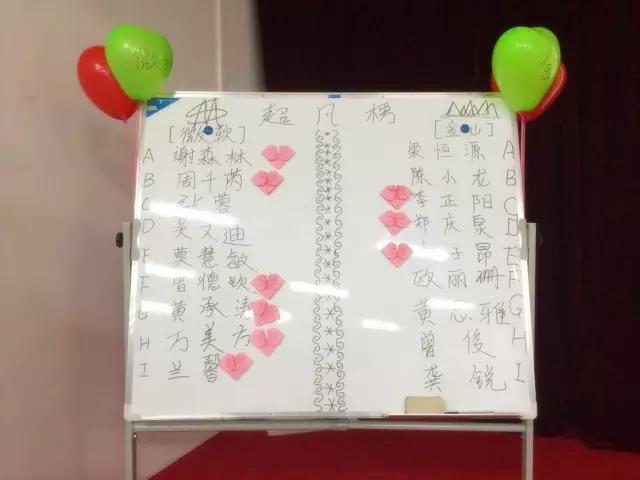 超凡榜
[微软]
A 谢森林
B 周千芮
C 张蕾
D 吴文迪
E 莫慧敏
F 曾德钦
G 黄承
H 万美方
I 兰馨
[金山]
梁恒源 A
陈小龙 B
李正阳 C
郑庆泉 D
子昂 E
欧丽珊 F
黄忘雅 G
曾俊 H
龚锐 I
微
金